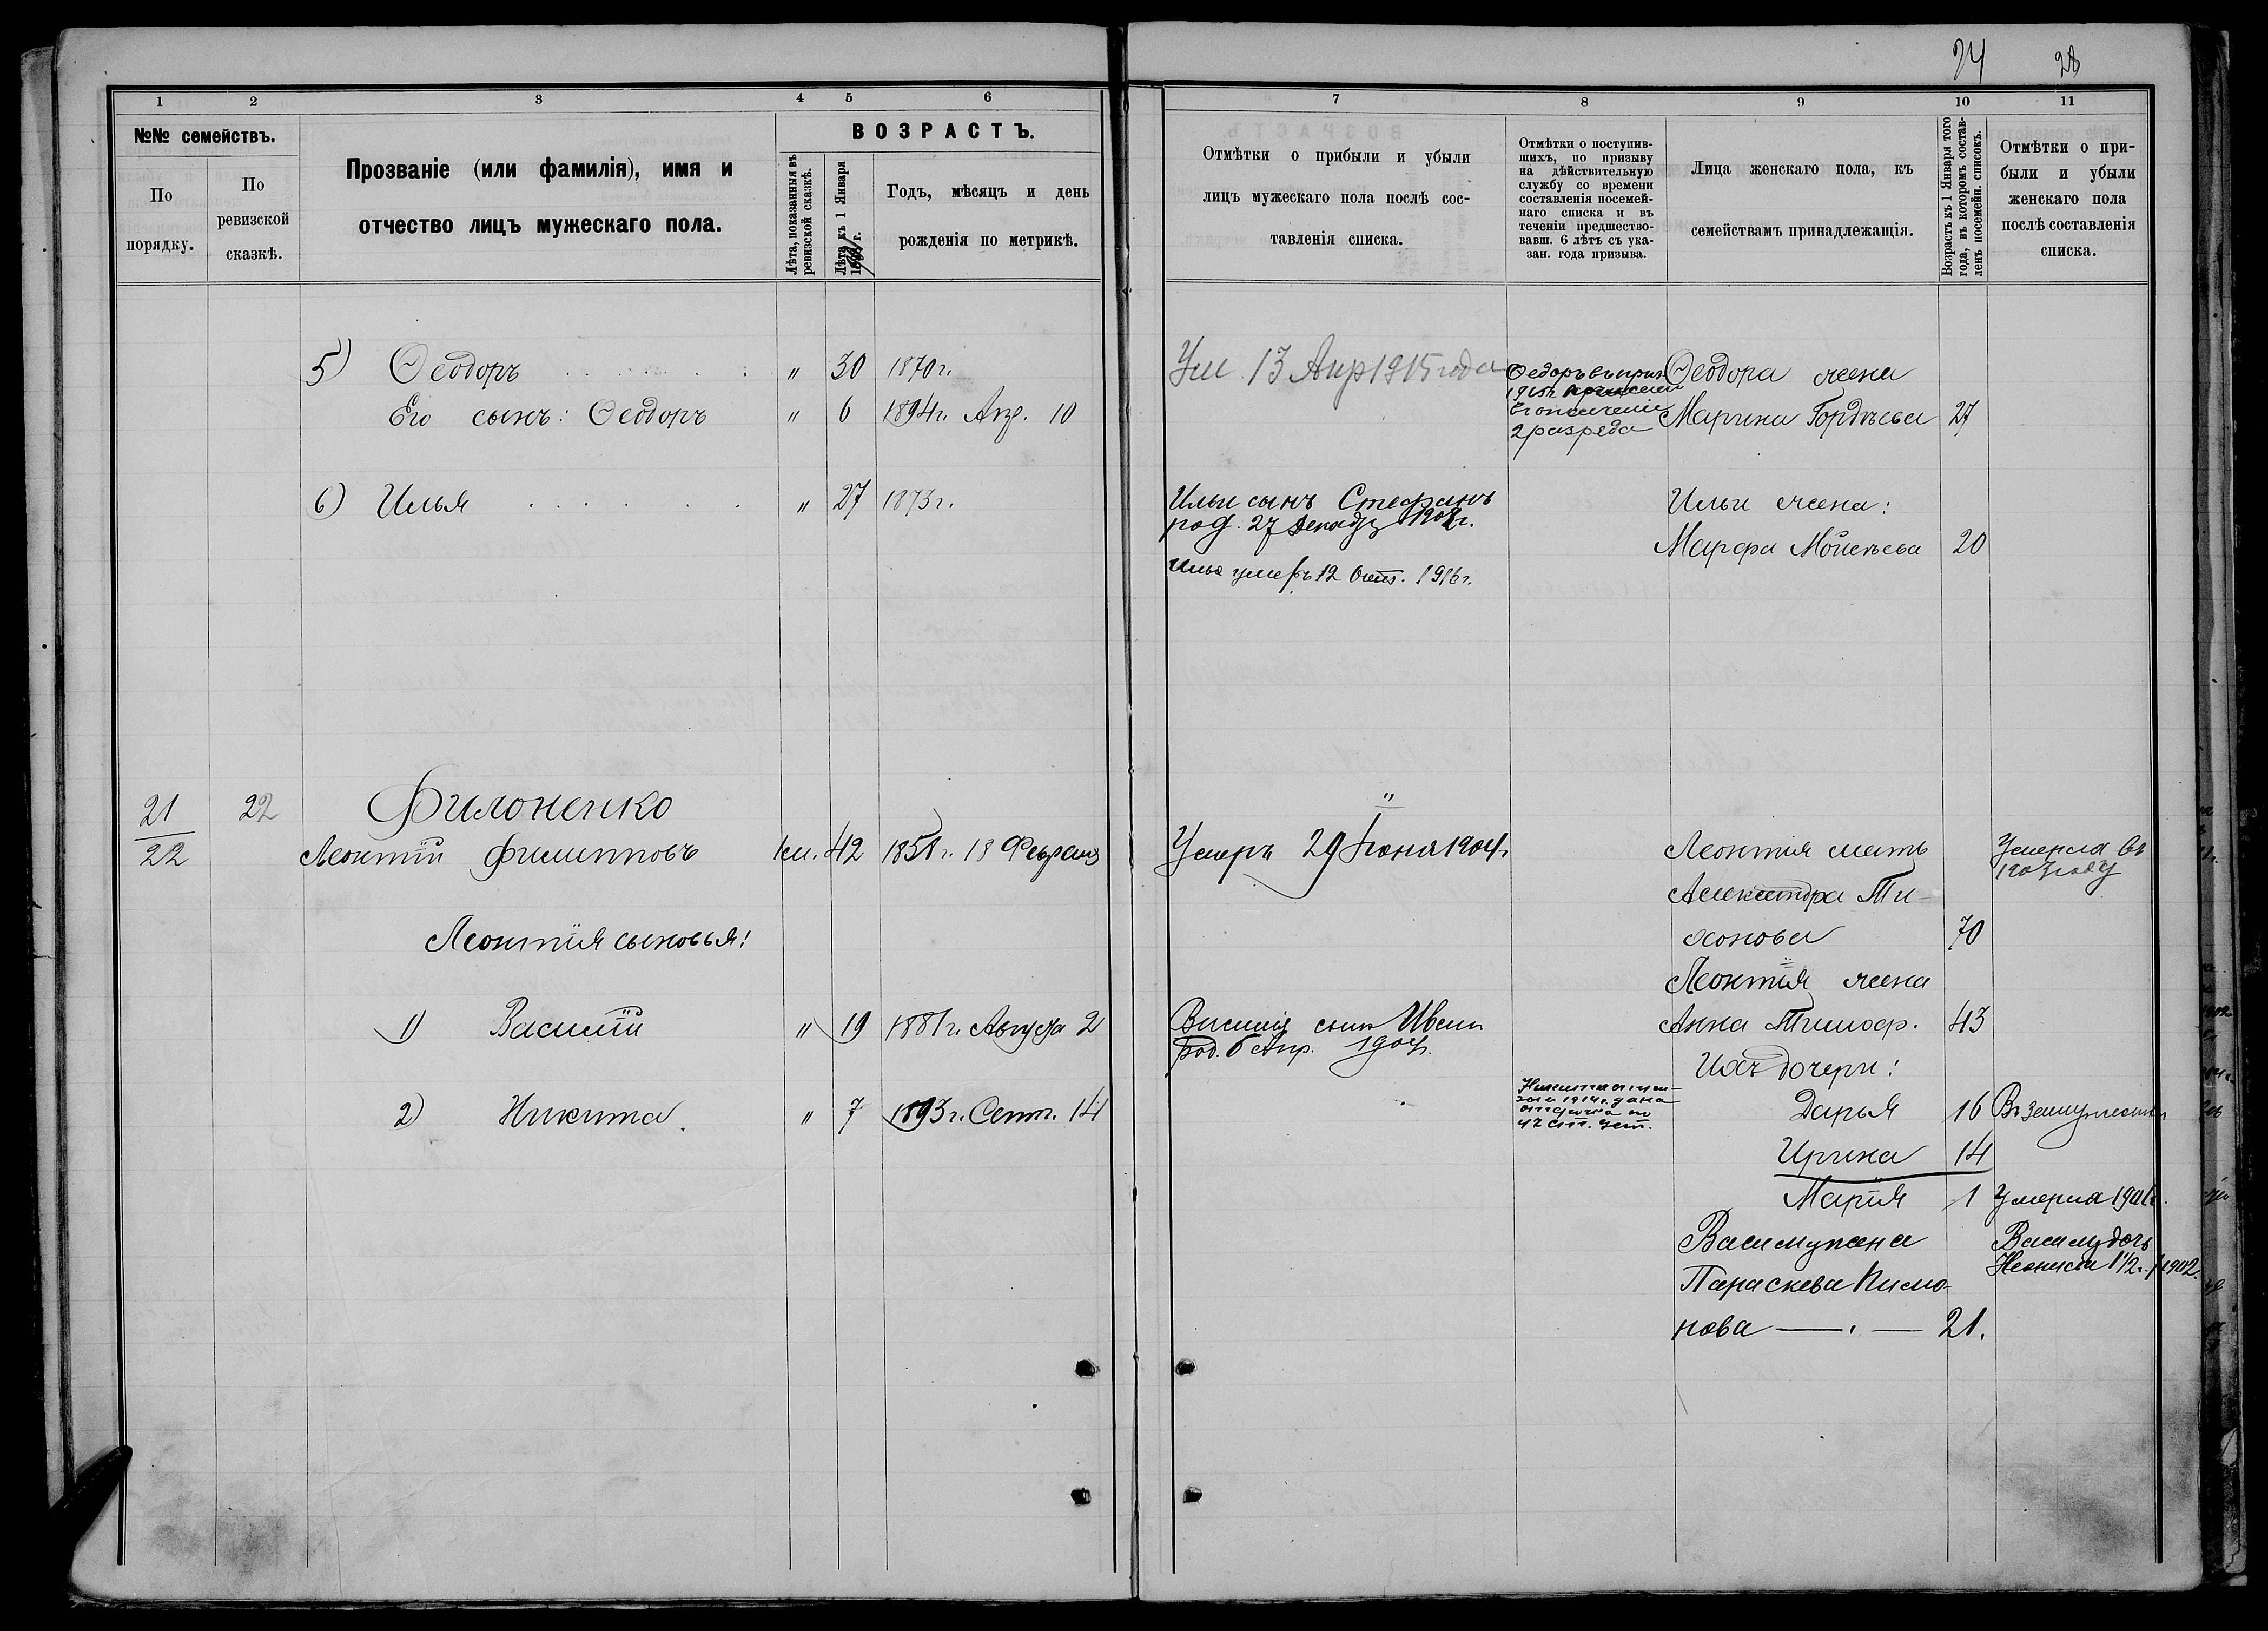 24 28
1 2 3 4 5 6 7 8 9 10 11
№№ семействъ.
По порядку.
По ревизской сказкѣ.
Прозваніе (или фамилія), имя и
отчество лицъ мужескаго пола.
ВОЗРАСТЪ.
Лѣта, показанныя въ
ревизской сказкѣ.
Лѣта къ 1 Января
г.
Годъ, мѣсяцъ и день
рожденія по метрикѣ.
Отмѣтки о прибыли и убыли
лицъ мужескаго пола послѣ сос-
тавленія списка.
Отмѣтки о поступив-
шихъ, по призыву
на дѣйствительную
службу со времени
составленія посемей-
наго списка и въ
теченіи предшество-
вавш. 6 лѣтъ съ ука-
зан. года призыва.
Лица женскаго пола, къ
семействамъ принадлежащія.
Возрастъ къ 1 Января того
года, въ которомъ состав-
ленъ посемейн. списокъ.
Отмѣтки о при-
были и убыли
женскаго пола
послѣ составленія
списка.
5) Ѳеодоръ " 30 1870 г. Ум. 13 Апр 1915 года Ѳеодора жена
Его сынъ: Ѳеодоръ " 6 1894 г. Апр. 10 Марина Гордѣева 27
Ѳедоръ въ приз.
1915 г.
въ ополченіе
2 разреда
6) Илья " 27 1873 г. Ильи сынъ Стефанъ Ильи жена:
род. 27 Декабр
Марфа Мойсѣева 20
Илья умеръ 12 1916 г.
21 22 Филоненко "
22 Леонтій Филипповъ 1 м. 42 18 Февраля Умеръ 29 Іюня 1904 г. Леонтія мать Умерла въ
году
Александра Ти-
Леонтія сыновья: хонова 70
Леонтія жена
1) Василій " 19 1881 г. Августа 2 Василія сынъ Иванъ Анна Тимоф. 43
род. 6 Апр. 1904 г.
Ихъ дочери:
2) Никита " 7 1893 г. Сент. 14 Дарья 16 Въ замужествѣ
Никита
1914 г. дана
отсрочка по
42 ст. уст.
Ирина 14
Марія 1 Умерла
Васил. жена Васил. дочь
1½ г. 1902.
Параскева Пимо-
нова — 21.